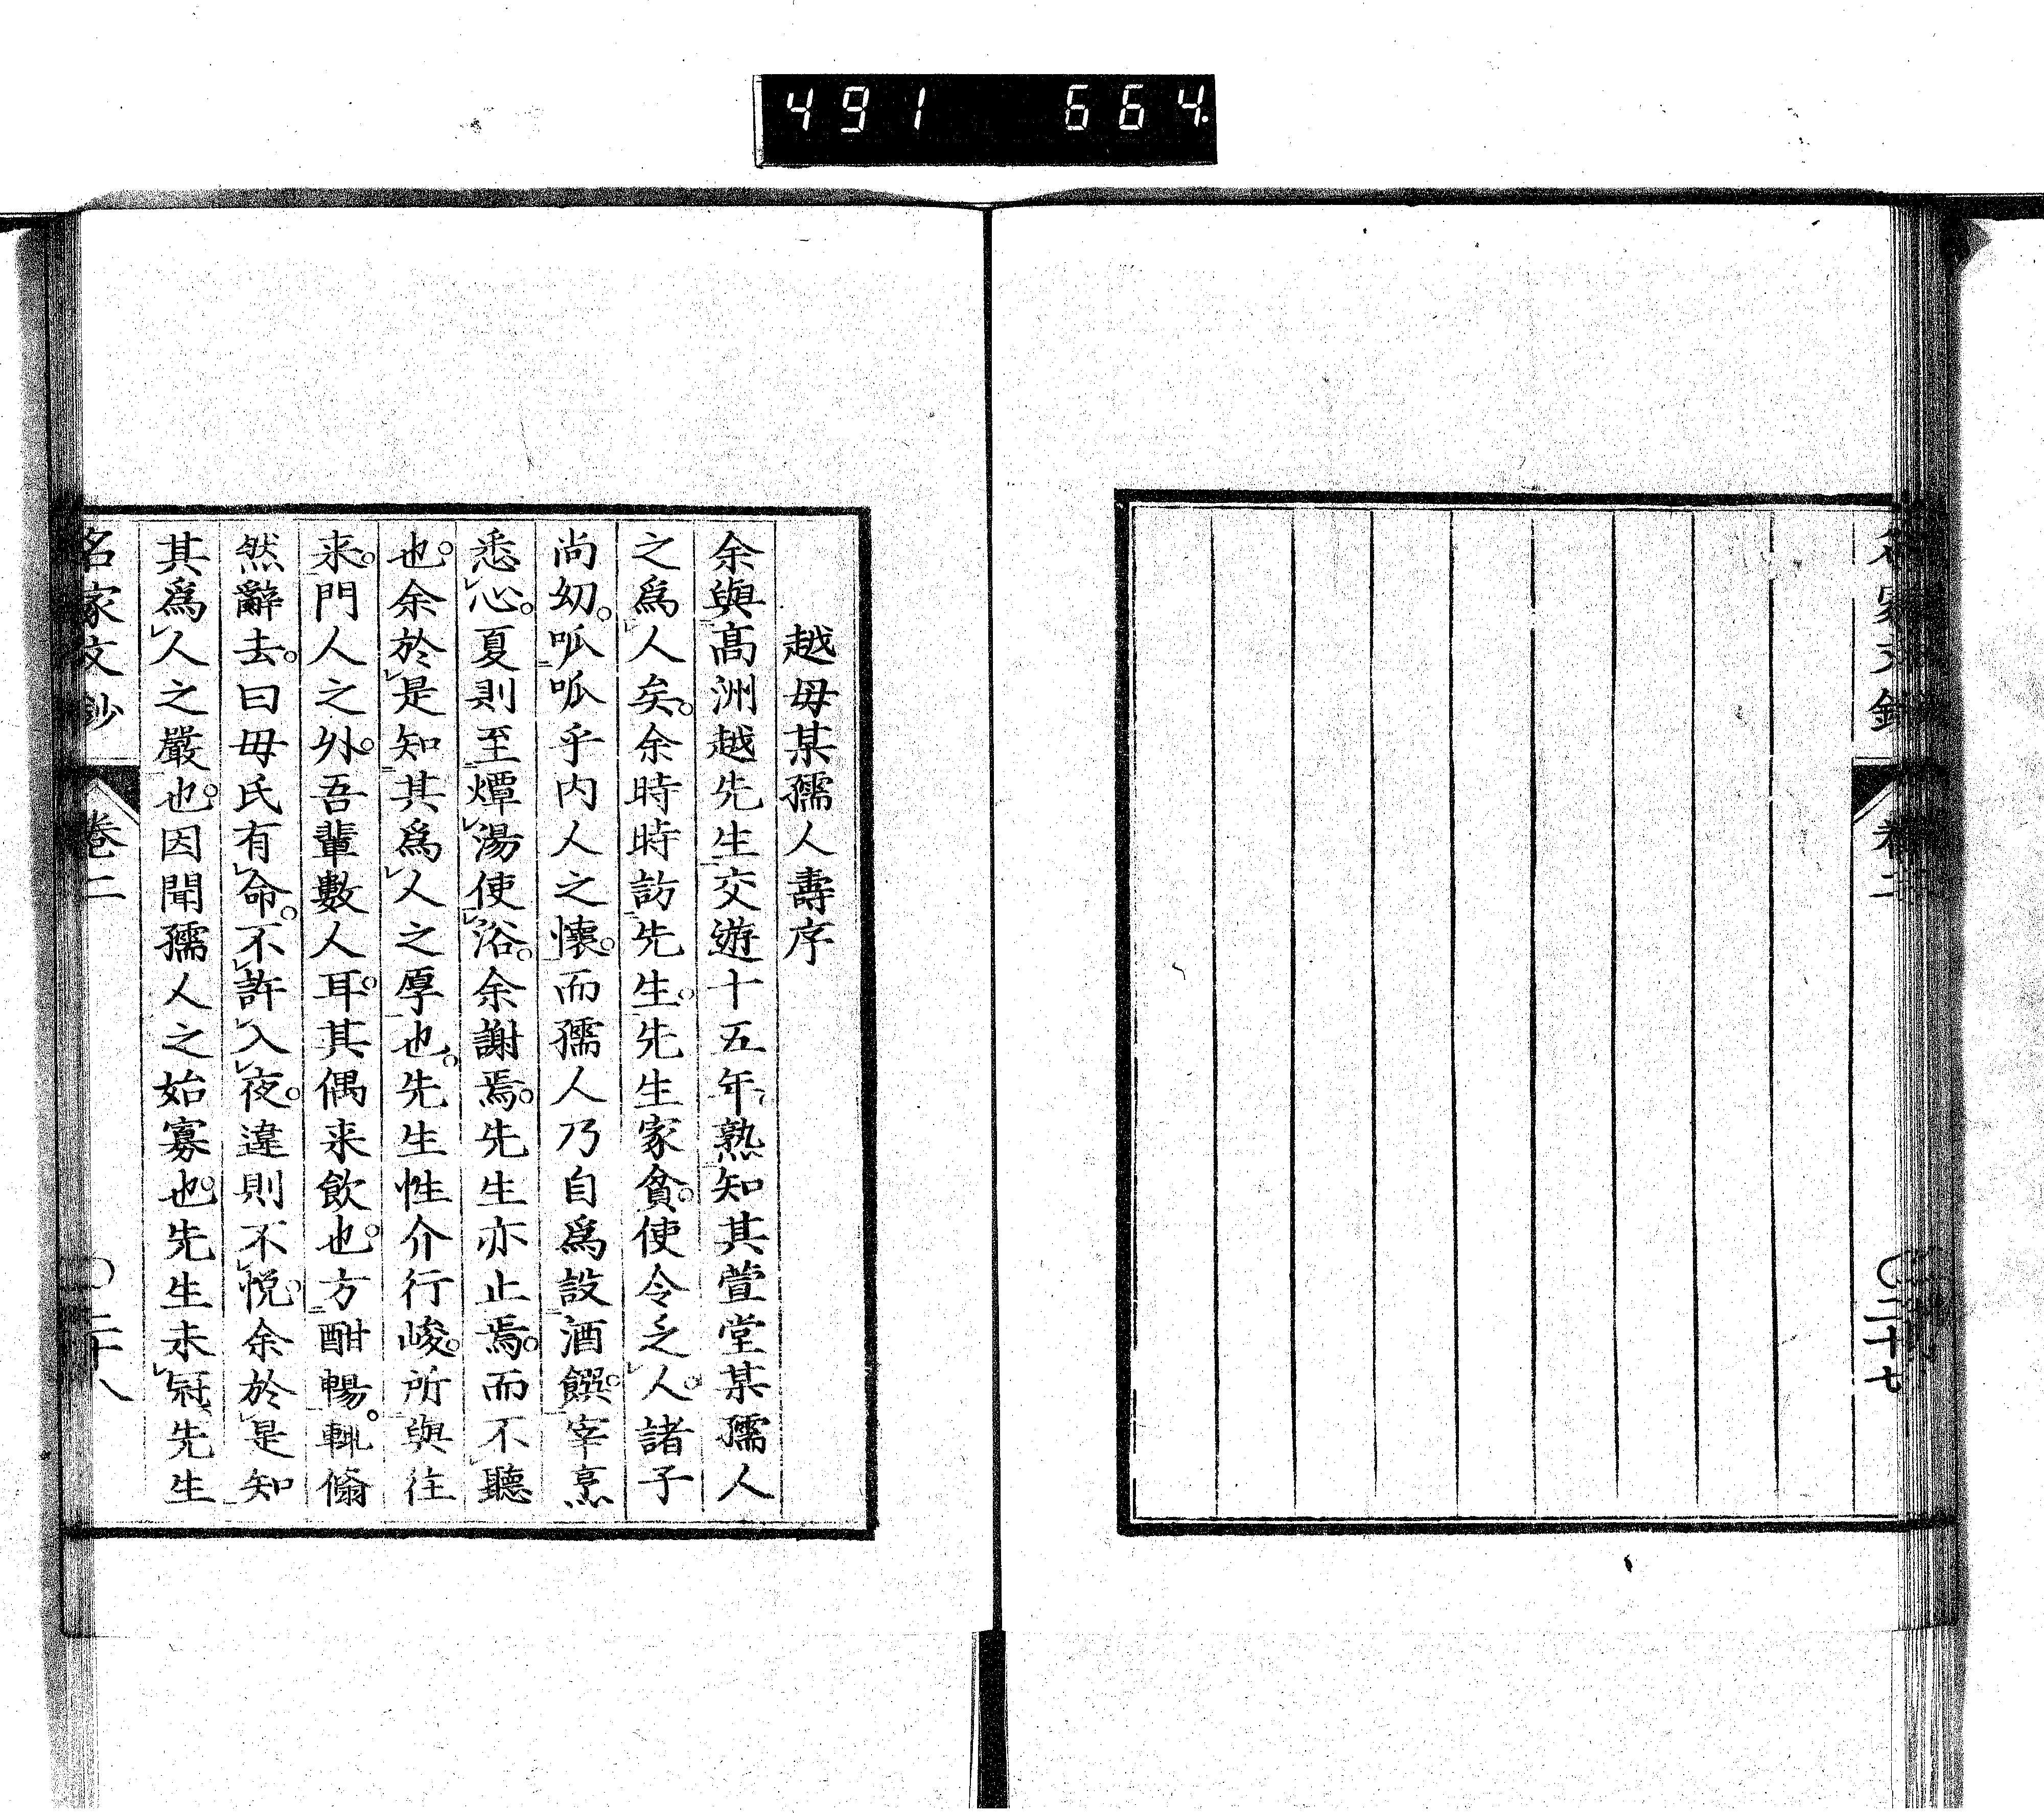 491 664.
名家文鈔 卷二 〇二十七
越毋某孺人壽序
余與高洲越先生交遊十五年熟知其萱堂某孺人
之爲人矣。余時時訪先生。先生家貧。使令乏人。諸子
尚幼。呱呱乎内人之懷。而孺人乃自爲設酒饌。宰烹
悉心。夏則至燂湯使浴。余謝焉。先生亦止焉。而不聽
也。余於是知其爲人之厚也。先生性介行峻。所與往
来。門人之外。吾輩數人耳。其偶来飲也。方酣暢。輒偹
然辭去。曰毋氏有命。不許入夜。違則不悦。余於是知
其爲人之嚴也。因聞孺人之始寡也。先生未冠先生
名家文鈔 卷二 〇二十八